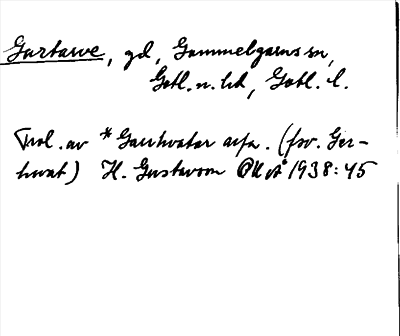 Gartarve, gd, Gammelgarns sn,
Gotl. n. hd, Gotl. l.
Trol. av * Gairhvatar arfa. (fsv. Ger-
hvat) H. Gustavson OUÅ 1938: 45